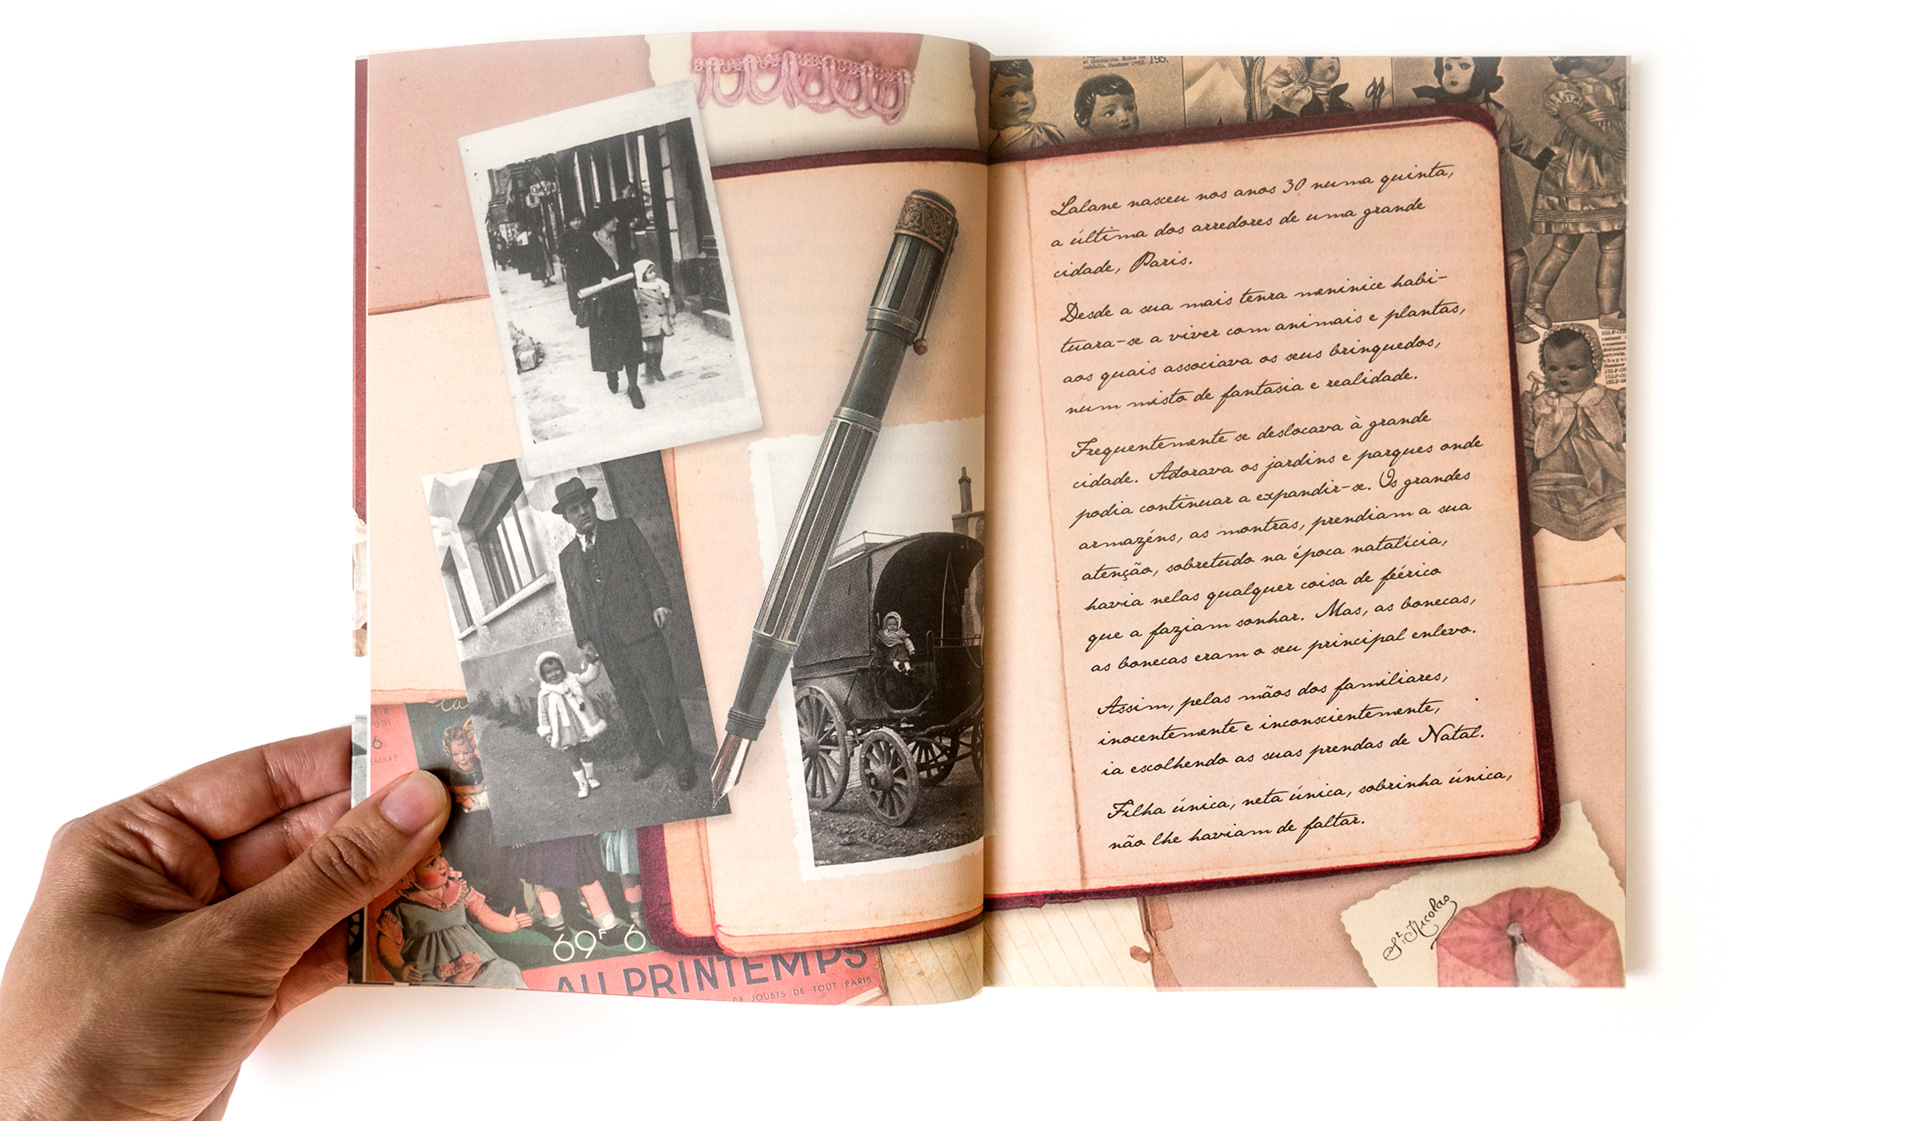 69F 6
AU PRINTEMPS
DE JOUETS DE TOUT PARIS
195.
Lalane nasceu nos anos 30 numa quinta,
a última dos arredores de uma grande
cidade, Paris.
Desde a sua mais tenra meninice habi-
tuara-se a viver com animais e plantas,
aos quais associava os seus brinquedos,
num misto de fantasia e realidade.
Frequentemente se deslocava à grande
cidade. Adorava os jardins e parques onde
podia continuar a expandir-se. Os grandes
armazéns, as montras, prendiam a sua
atenção, sobretudo na época natalícia,
havia nelas qualquer coisa de feérico
que a faziam sonhar. Mas, as bonecas,
as bonecas eram o seu principal enlevo.
Assim, pelas mãos dos familiares,
inocentemente e inconscientemente,
ia escolhendo as suas prendas de Natal.
Filha única, neta única, sobrinha única,
não lhe haviam de faltar.
St. Nicolas